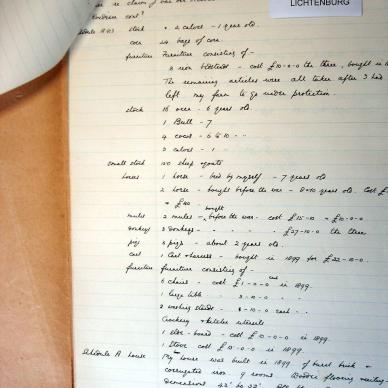 LICHTENBURG
re claim of
cont?
stock • 2 calves - 1 year old.
corn 24 bags of corn.
furniture Furniture consisting of -
3 iron bedsteads - cost £10-0-0 the three, bought in
The remaining articles were all taken after I had
left my farm to go under protection.
stock 16 oxen - 6 years old
1 Bull - 7
4 cows - 6 to 10 - -
3 calves - 1 -
small stock 120 sheep & goats
horses 1 horse - bred by myself - 7 years old
2 horses - bought before the war - 8 & 10 years old. Cost £
= £40
mules 2 mules - bought before the war - cost £15-10 = £10-0-0
donkeys 3 donkeys - - - - £27-10-0 the three
pigs 3 pigs - about 2 years old.
cart 1 Cart & harness - bought in 1899 for £22-10-0.
furniture furniture consisting of -
6 chairs - cost £1-0-0 each in 1899.
1 large table - 3-10-0 - -
2 washing stands - 8-10-0 each - -
Crockery & kitchen utensils
1 side-board - cost £10-0-0 in 1899.
1 Stove cost £10-0-0 in 1899.
Schedule A house My house was built in 1899 of burnt brick &
corrugated iron 9 rooms Wooden flooring
Dimensions 42' to 32'